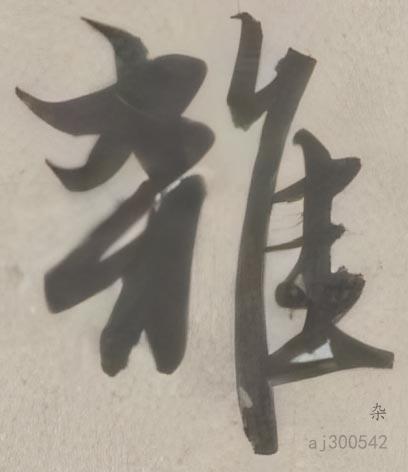 雜
杂
aj300542